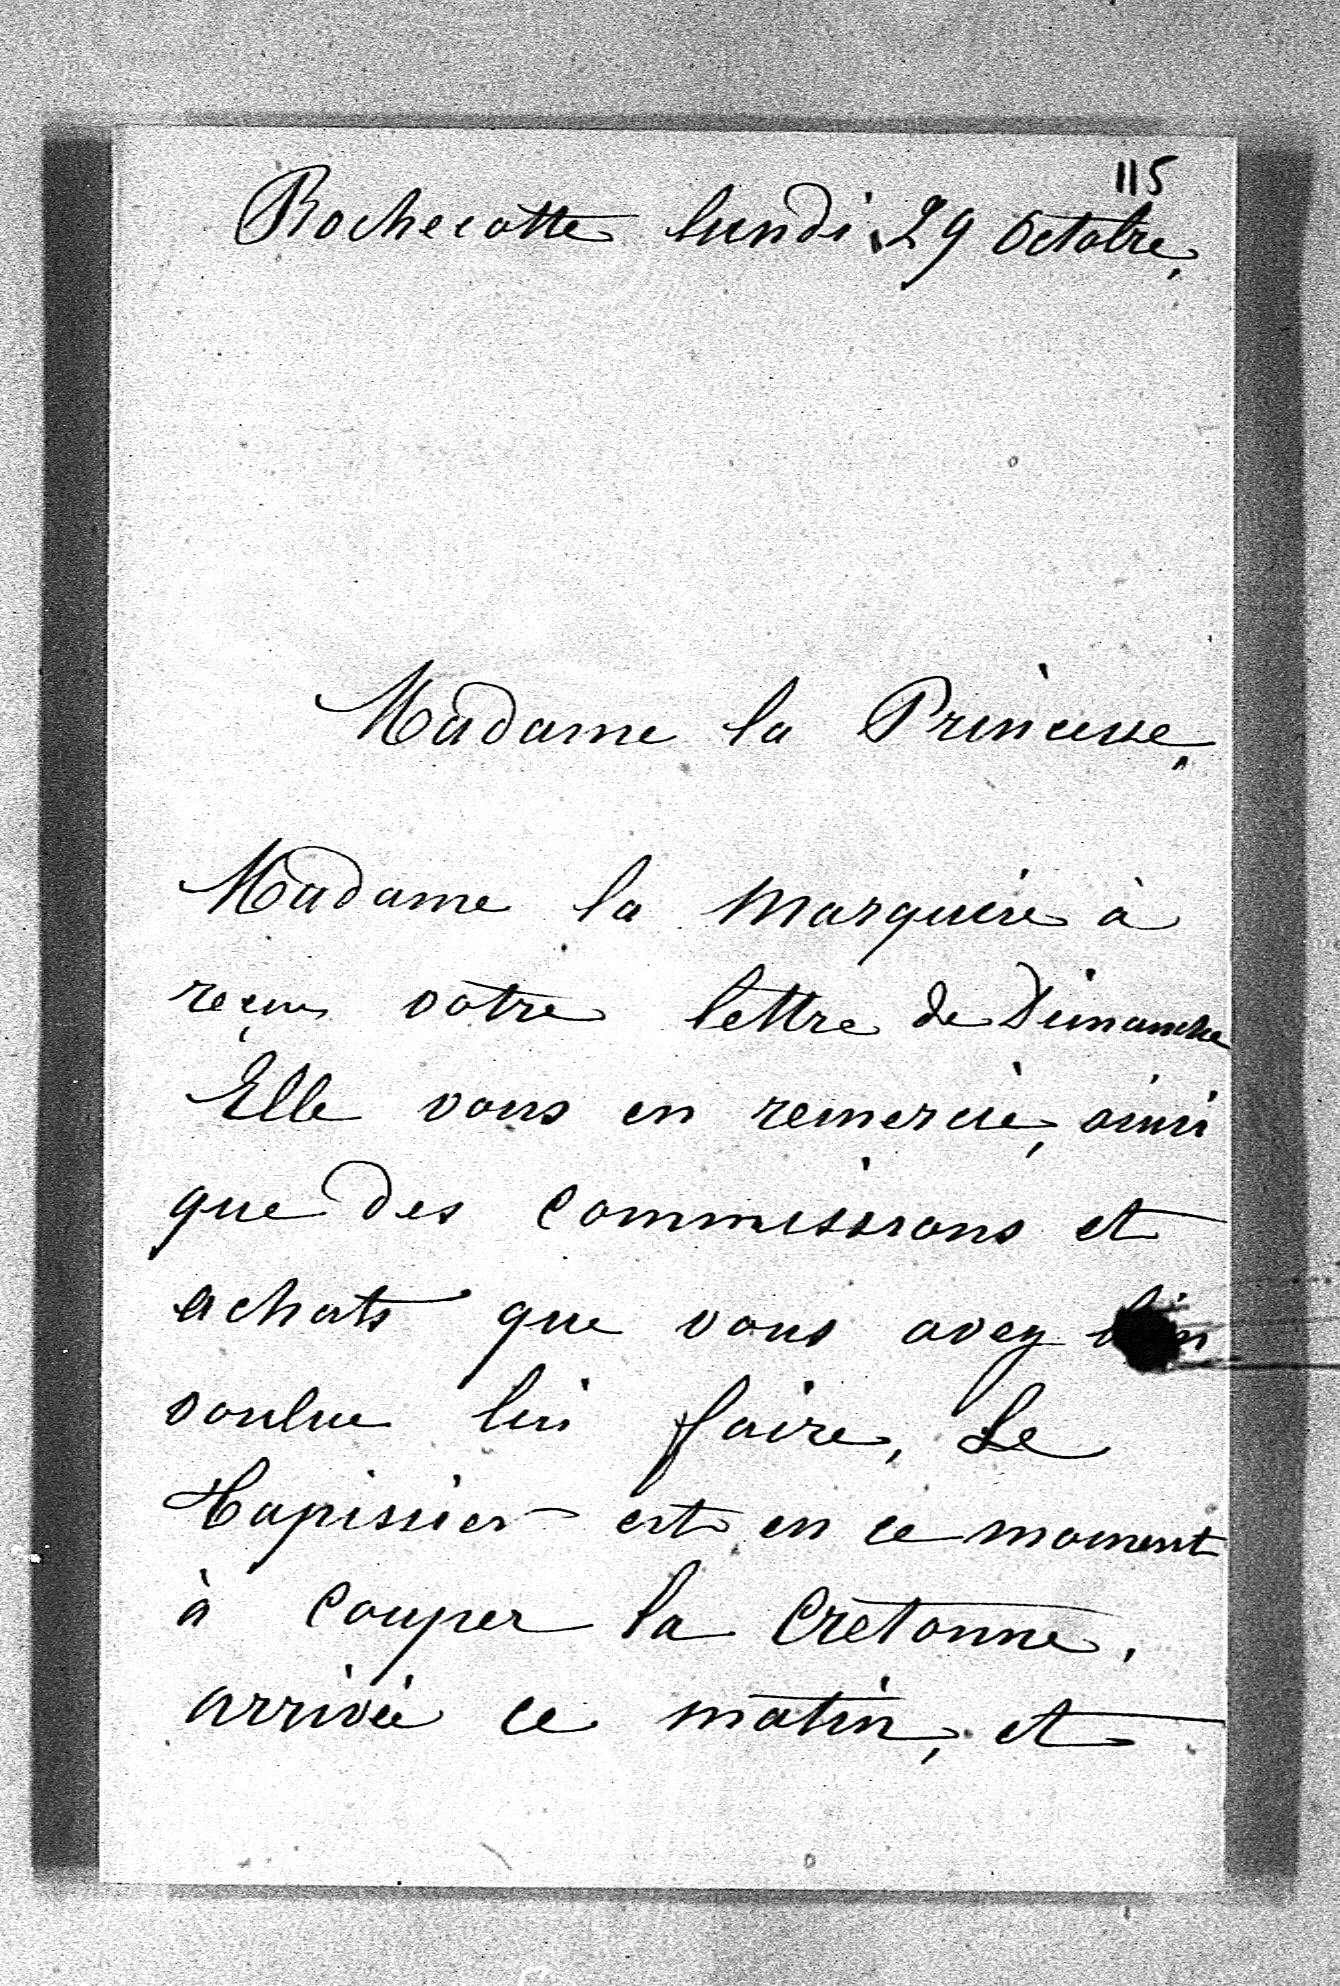 115
Rochecotte lundi 29 Octobre,
Madame la Princesse,
Madame la Marquise à
reçue votre lettre de Dimanche
Elle vous en remercie, ainsi
que des Commissions et
achats que vous avez
voulue lui faire, Le
tapissier est en ce moment
à Couper la Cretonne,
arrivée ce matin, et